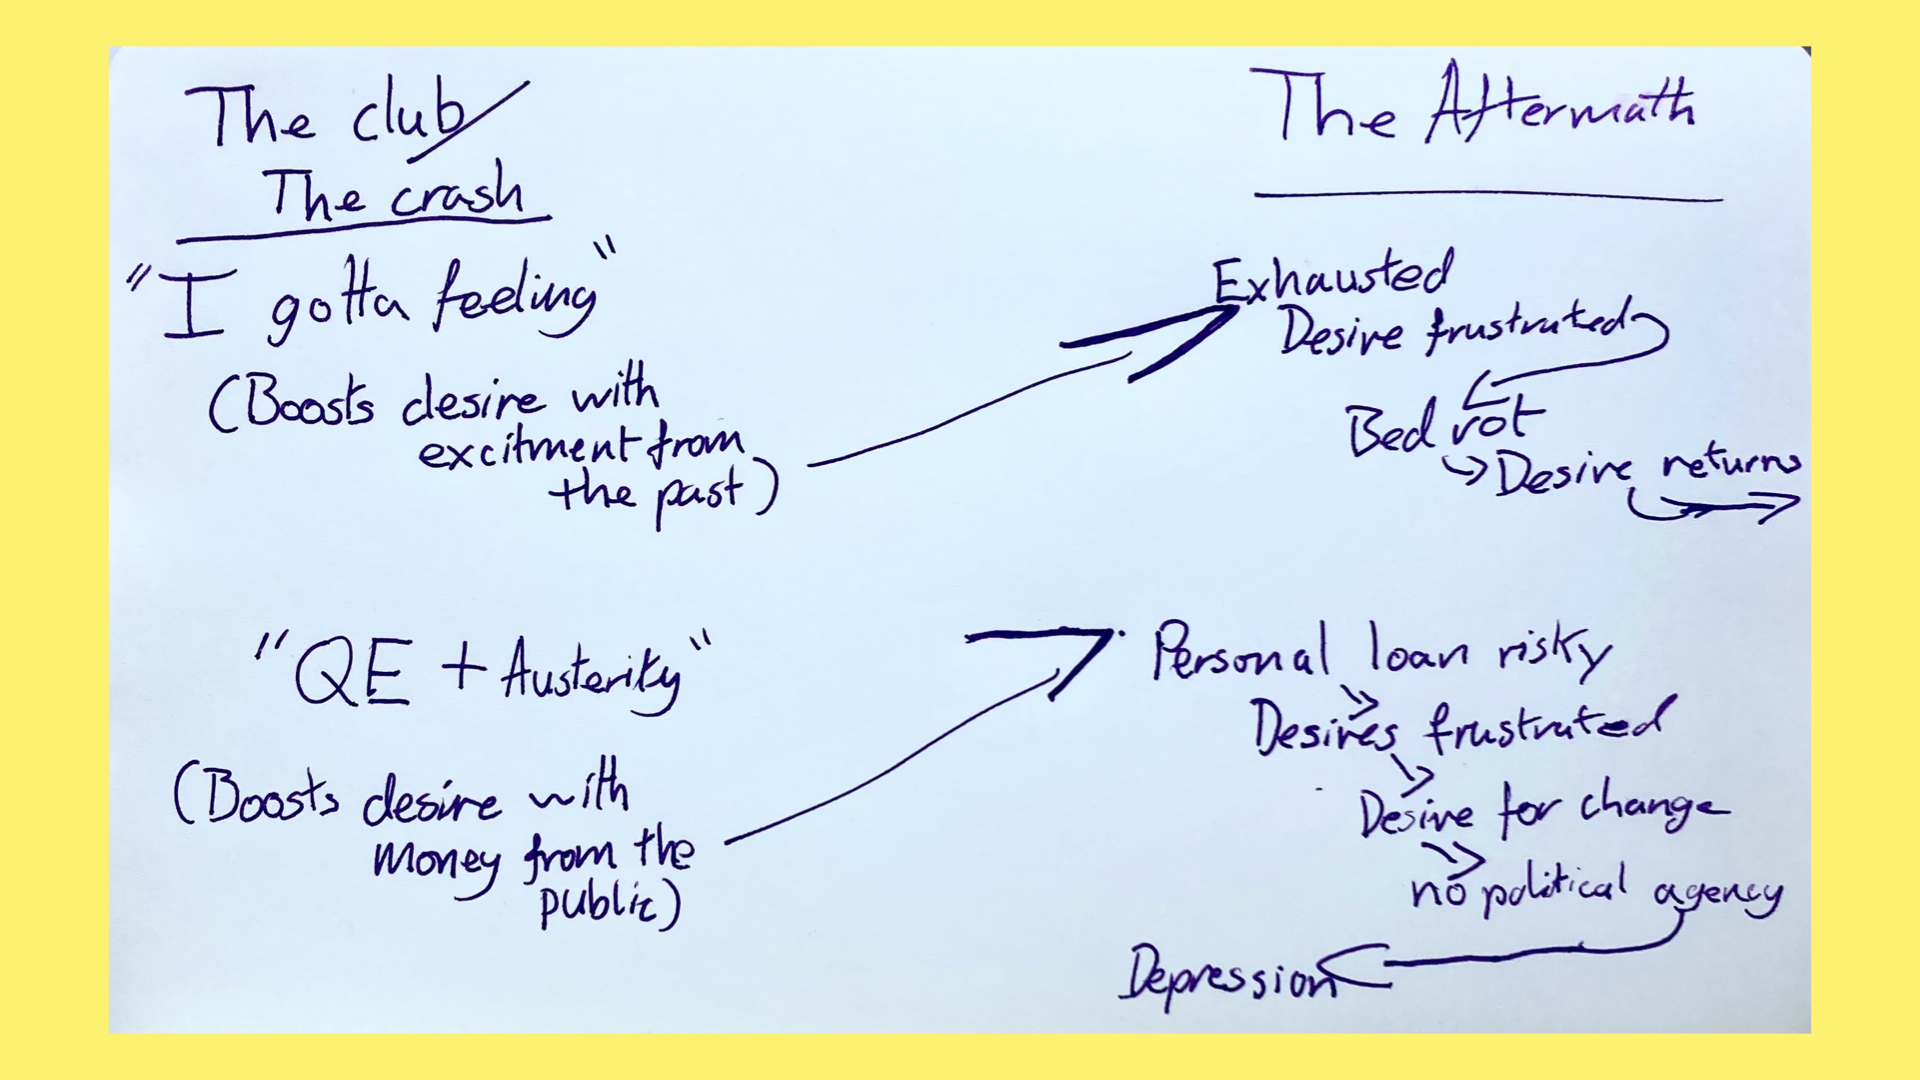 The club/
The crash
"I gotta feeling"
(Boosts desire with
excitment from
the past)
"QE + Austerity"
(Boosts desire with
money from the
public)
The Aftermath
Exhausted
Desire frustrated
Bed rot
Desire returns
Personal loan risky
Desires frustrated
Desire for change
no political agency
Depression